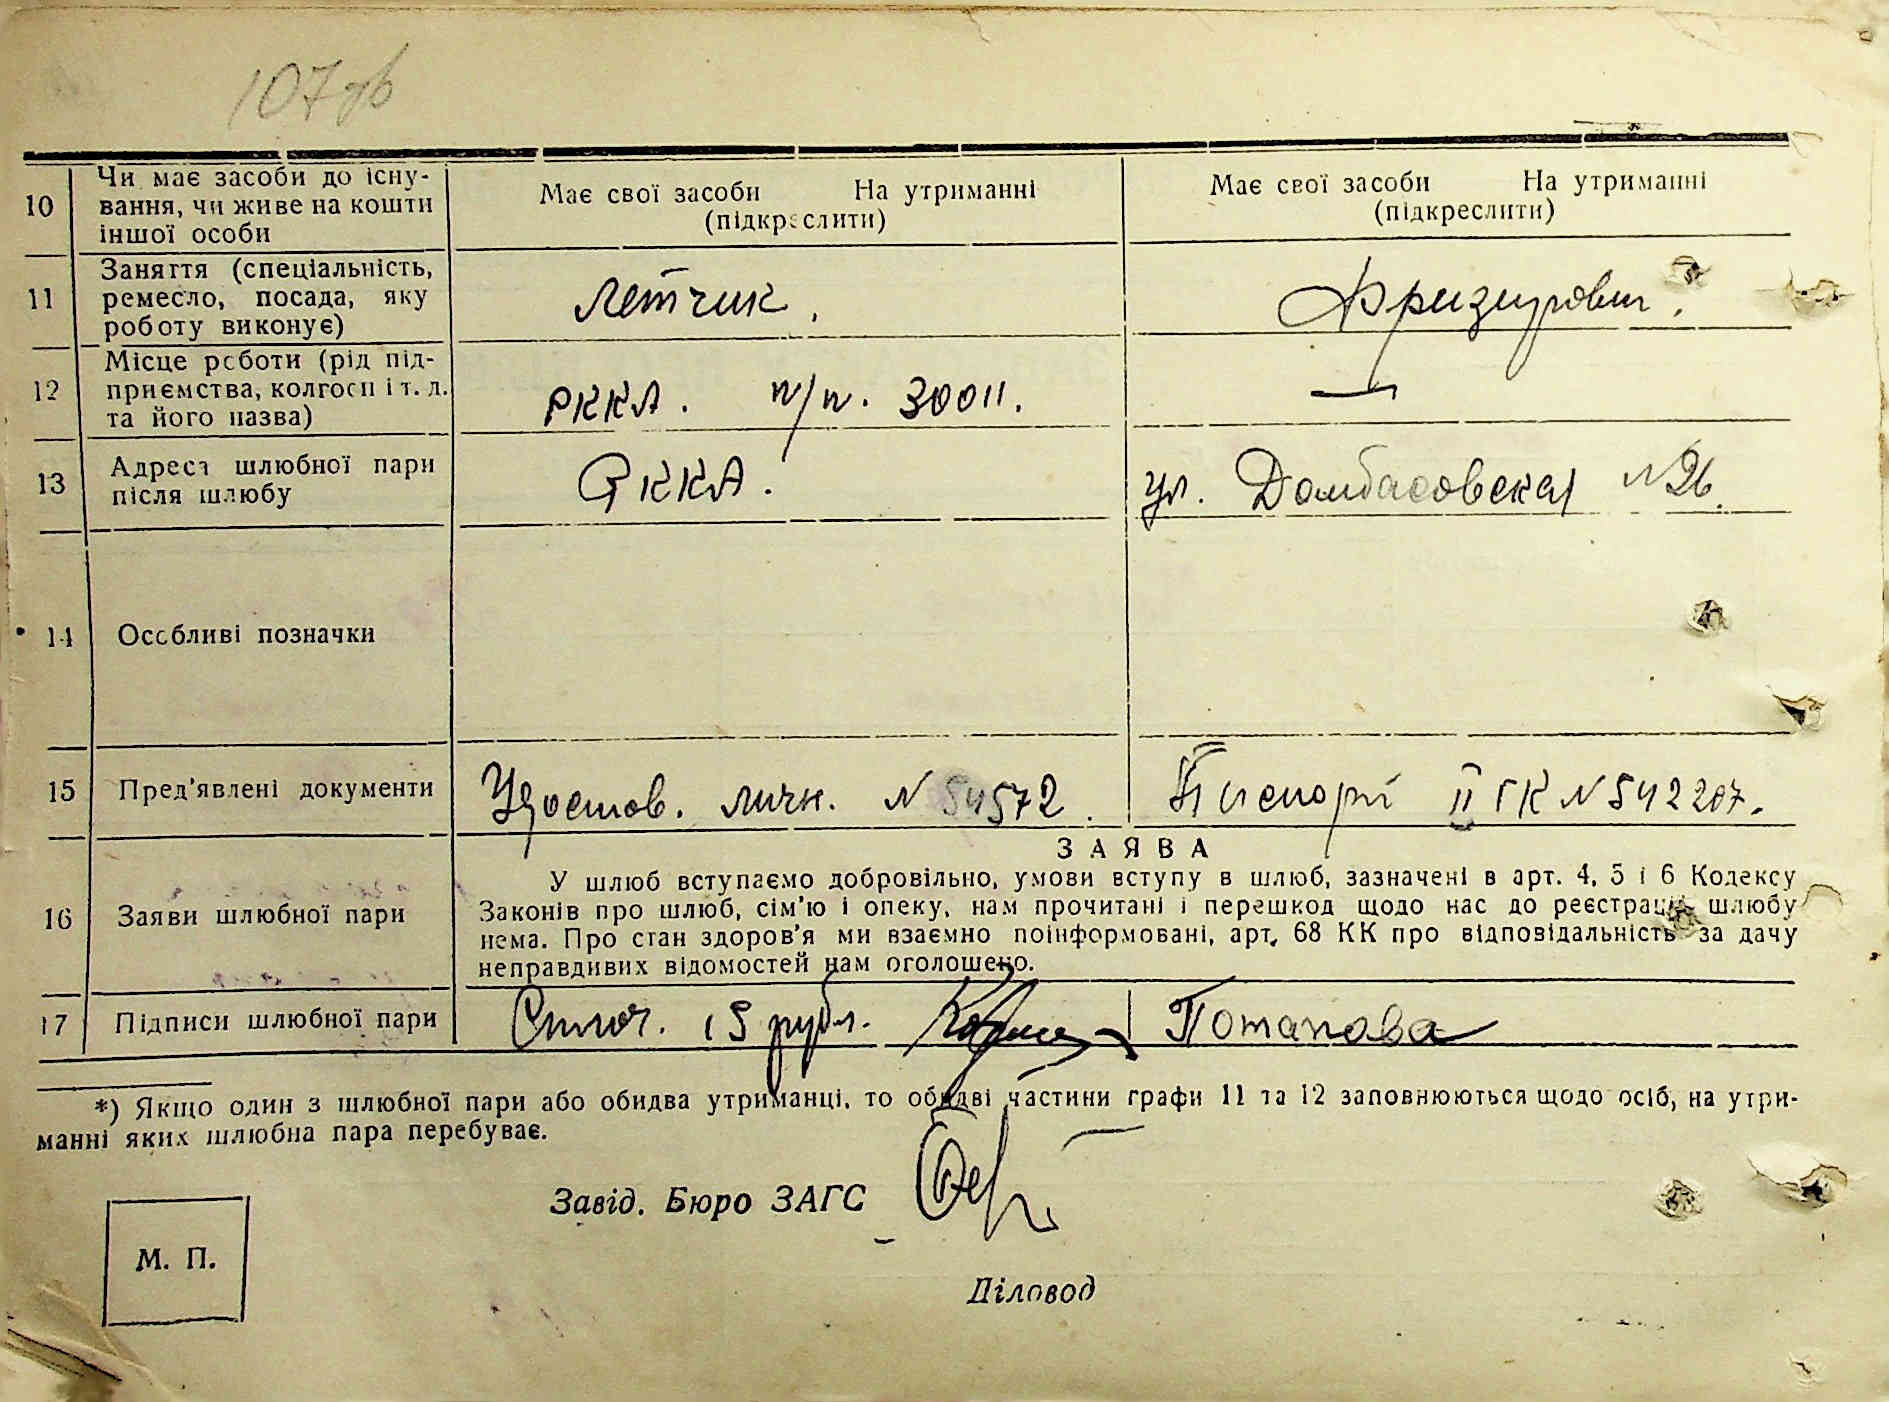 107 об
10 Чи має засоби до існу-
вання, чи живе на кошти
іншої особи
Має свої засоби На утриманні
(підкреслити)
Має свої засоби На утриманні
(підкреслити)
11 Заняття (спеціальність,
ремесло, посада, яку
роботу виконує)
Летчик.
12 Місце роботи (рід під-
приємства, колгосп і т. д.
та його назва)
РККА. п/п. 30011.
—
13 Адреса шлюбної пари
після шлюбу
РККА.
ул. Домбасовская N 26.
14 Особливі позначки
15 Пред'явлені документи
Удостов. личн. N 54572.
Паспорт II ГК N 542207.
16 Заяви шлюбної пари
ЗАЯВА
У шлюб вступаємо добровільно, умови вступу в шлюб, зазначені в арт. 4, 5 і 6 Кодексу
Законів про шлюб, сім'ю і опеку, нам прочитані і перешкод щодо нас до реєстрації шлюбу
нема. Про стан здоров'я ми взаємно поінформовані, арт. 68 КК про відповідальність за дачу
неправдивих відомостей нам оголошено.
17 Підписи шлюбної пари
Сплоч. 15 рубл. Потапова
*) Якщо один з шлюбної пари або обидва утриманці, то обидві частини графи 11 та 12 заповнюються щодо осіб, на утри-
манні яких шлюбна пара перебуває.
Завід. Бюро ЗАГС
М. П.
Діловод